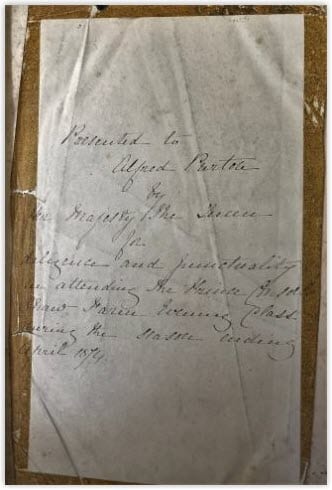 Presented to
Alfred Purton
by
Her Majesty The Queen
for
diligence and punctuality
in attending the Prince Consort
Shaw Farm Evening Class
during the season ending
April 1874.